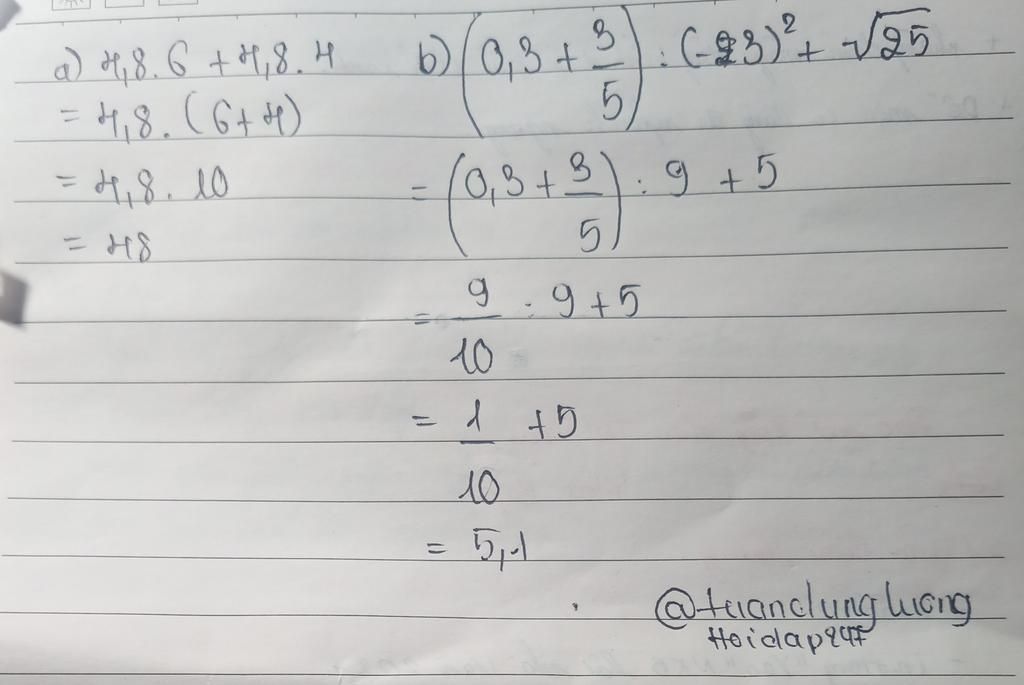 a) 4,8.6 + 4,8.4
= 4,8.(6+4)
= 4,8.10
= 48
b) (0,3 + 3/5) : (-3)² + √25
= (0,3 + 3/5) : 9 + 5
= 9/10 : 9 + 5
= 1/10 + 5
= 5,1
@tuandungluong
Hoidap247